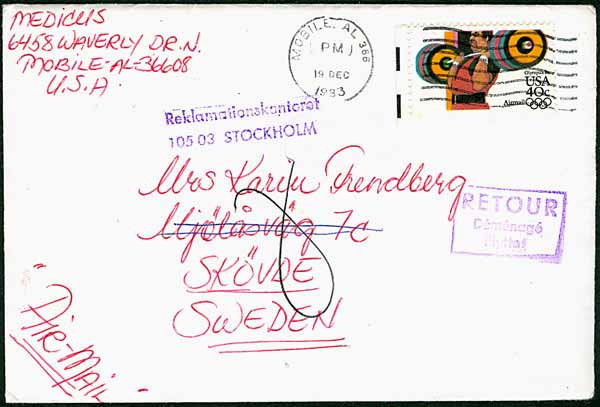 MEDICUS
6458 WAVERLY DR. N.
MOBILE-AL-36608
U.S.A.
MOBILE, AL 366
PM
19 DEC
1983
Olympics
USA
40c
Airmail
Reklamationskontoret
105 03 STOCKHOLM
Mrs Karin Trendberg
Mjölåsväg 7c
SKÖVDE
SWEDEN
RETOUR
Déménagé
Flyttat
"AIR-MAIL"